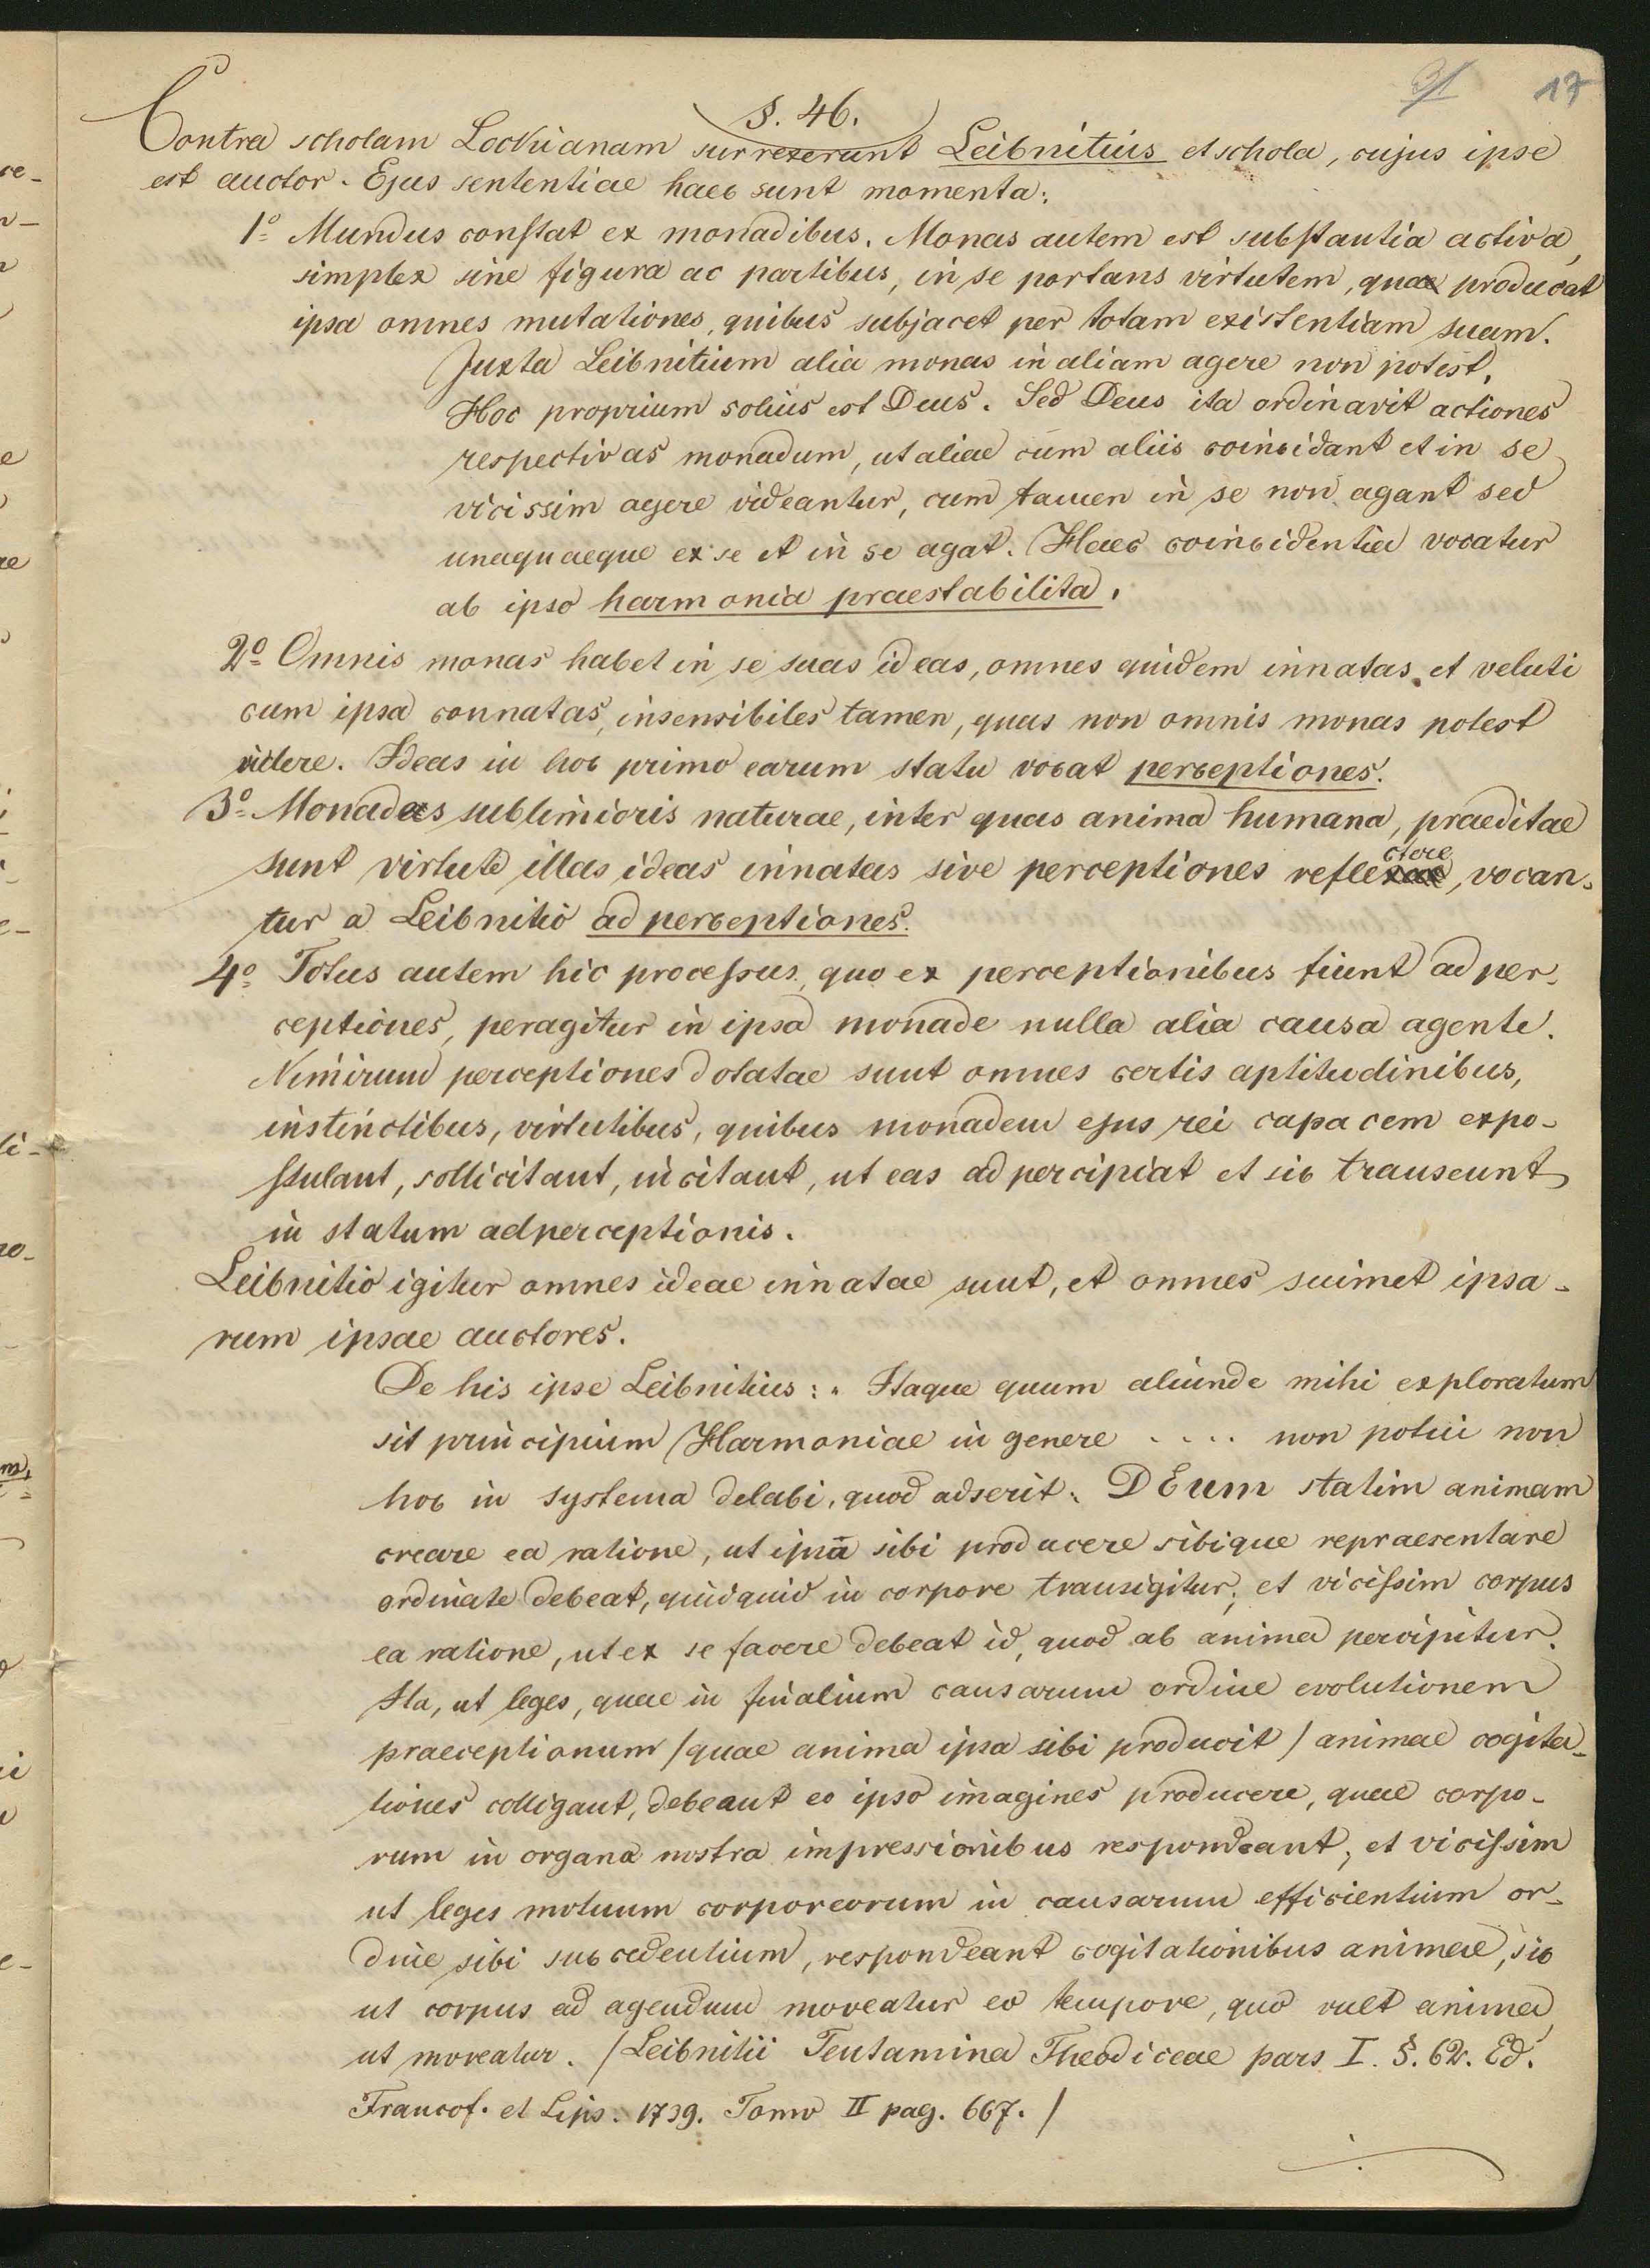 31 17
§. 46.
Contra scholam Lockianam surrexerunt Leibnitius et schola, cujus ipse
est auctor. Ejus sententiae haec sunt momenta:
1º Mundus constat ex monadibus. Monas autem est substantia activa,
simplex sine figura ac partibus, in se portans virtutem, quae producat
ipsa omnes mutationes, quibus subjacet per totam existentiam suam.
Juxta Leibnitium alia monas in aliam agere non potest.
Hoc proprium solius est Deus. Sed Deus ita ordinavit actiones
respectivas monadum, ut aliae cum aliis coincidant et in se
vicissim agere videantur, cum tamen in se non agant sed
unaquaeque ex se et in se agat. Haec coincidentia vocatur
ab ipso harmonia praestabilita.
2º Omnis monas habet in se suas ideas, omnes quidem innatas et veluti
cum ipsa connatas, insensibiles tamen, quas non omnis monas potest
videre. Ideas in hoc primo earum statu vocat perceptiones.
3º Monades sublimioris naturae, inter quas anima humana, praeditae
sunt virtute illas ideas innatas sive perceptiones reflectere, vocan-
tur a Leibnitio adperceptiones.
4º Totus autem hic processus, quo ex perceptionibus fiunt adper-
ceptiones, peragitur in ipsa monade nulla alia causa agente.
Nimirum perceptiones dotatae sunt omnes certis aptitudinibus,
instinctibus, virtutibus, quibus monadem ejus rei capacem expo-
stulant, sollicitant, incitant, ut eas adpercipiat et sic transeunt
in statum adperceptionis.
Leibnitio igitur omnes ideae innatae sunt, et omnes suimet ipsa-
rum ipsae auctores.
De his ipse Leibnitius: „ Itaque quum aliunde mihi exploratum
sit principium Harmoniae in genere .... non potui non
hoc in systema delabi, quod adserit: DEum statim animam
creare ea ratione, ut ipsa sibi producere sibique repraesentare
ordinate debeat, quidquid in corpore transigitur; et vicissim corpus
ea ratione, ut ex se facere debeat id, quod ab anima percipitur.
Ita, ut leges, quae in finalium causarum ordine evolutionem
praeceptionum /quae anima ipsa sibi producit/ animae cogita-
tiones colligant, debeant eo ipso imagines producere, quae corpo-
rum in organa nostra impressionibus respondeant; et vicissim
ut leges motuum corporeorum in causarum efficientium or-
dine sibi succedentium, respondeant cogitationibus animae, sic
ut corpus ad agendum moveatur eo tempore, quo vult anima,
ut moveatur. /Leibnitii Tentamina Theodiceae pars I. §. 62. Ed.
Francof. et Lips. 1739. Tomo II pag. 667. /